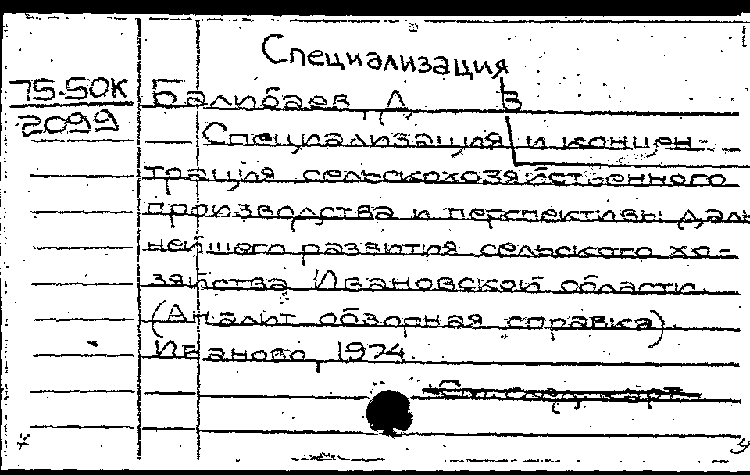 Специализация
75-50К Балибаев, Д В
2099 Специализация и концен-
трация сельскохозяйственного
производства и перспективы даль
нейшего развития сельского хо-
зяйства Ивановской области.
(Аналит обзорная справка).
Иваново, 1974.
См. след. карт.